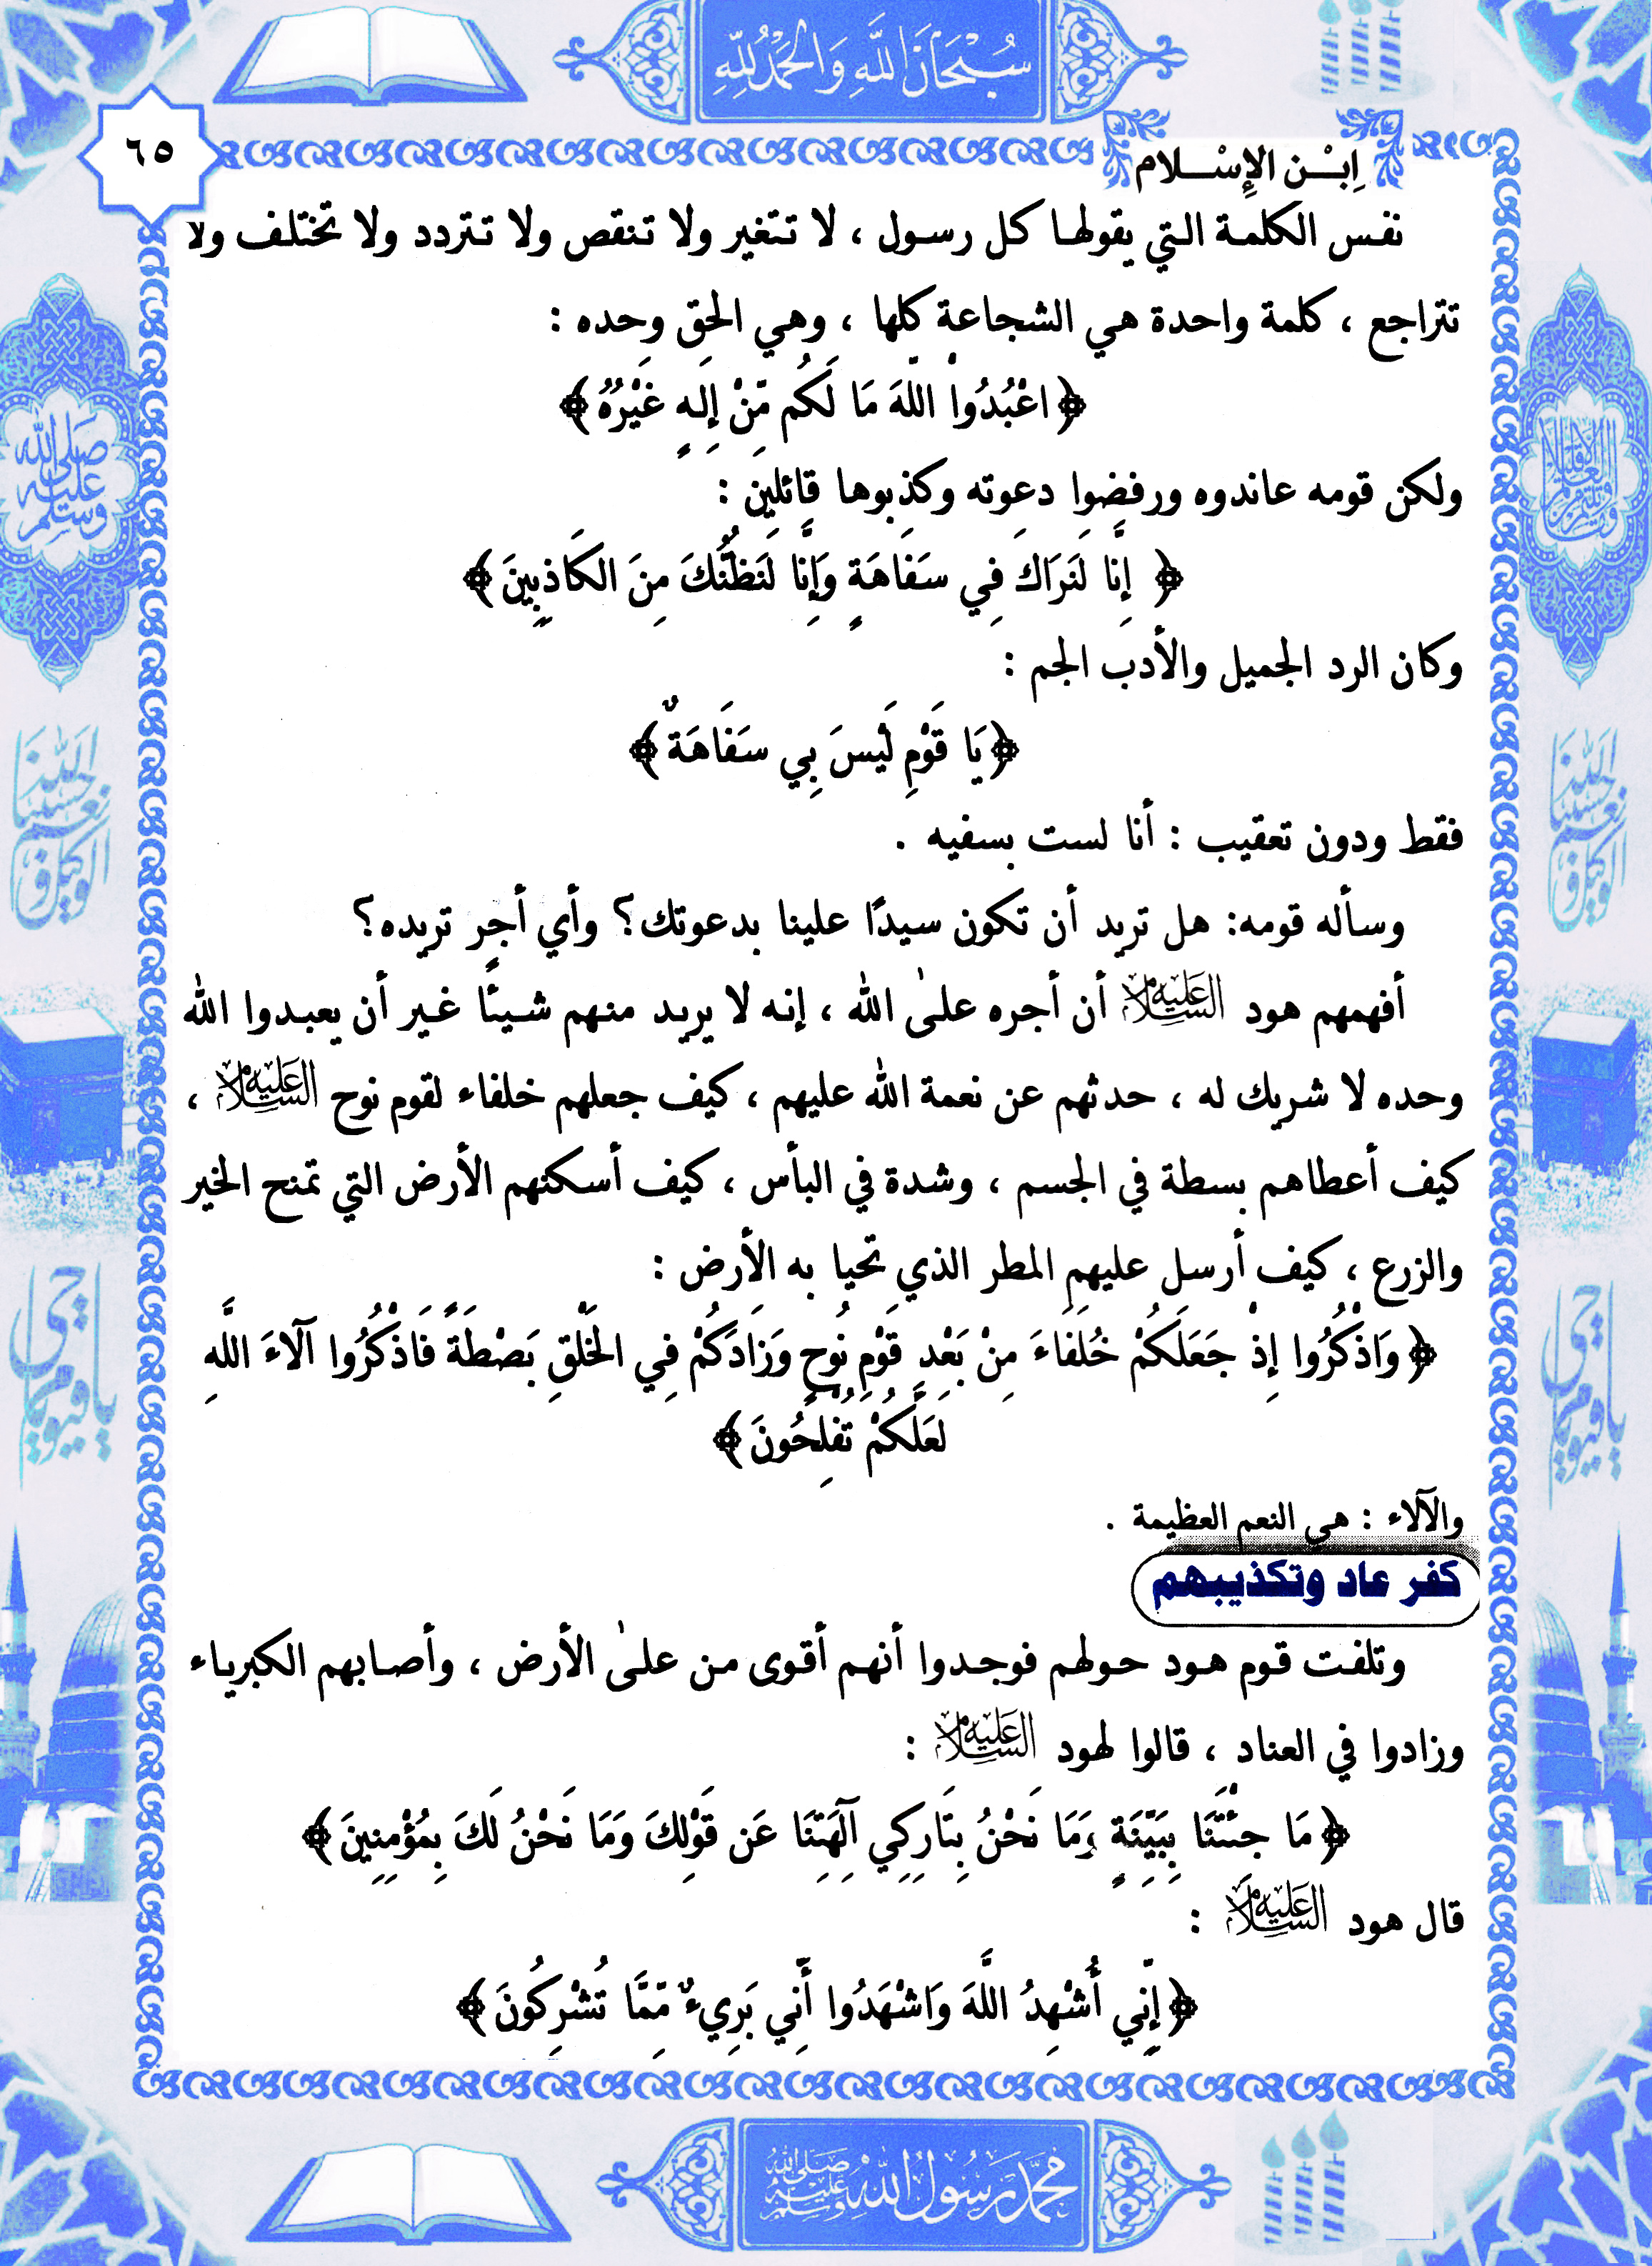 سُبْحَانَ اللَّهِ وَالْحَمْدُ لِلَّهِ
٦٥
اِبْـن الإِسْـلام
نفس الكلمة التي يقولها كل رسول ، لا تتغير ولا تنقص ولا تتردد ولا تختلف ولا
تتراجع ، كلمة واحدة هي الشجاعة كلها ، وهي الحق وحده :
﴿اعْبُدُواْ اللَّهَ مَا لَكُم مِّنْ إِلَهٍ غَيْرُهُ﴾
ولكن قومه عاندوه ورفضوا دعوته وكذبوها قائلين :
﴿ إِنَّا لَنَرَاكَ فِي سَفَاهَةٍ وَإِنَّا لَنَظُنُّكَ مِنَ الكَاذِبِينَ﴾
وكان الرد الجميل والأدب الجم :
﴿يَا قَوْمِ لَيْسَ بِي سَفَاهَةٌ﴾
فقط ودون تعقيب : أنا لست بسفيه .
وسأله قومه: هل تريد أن تكون سيدًا علينا بدعوتك؟ وأي أجر تريده؟
أفهمهم هود عَلَيْهِ السَّلام أن أجره على الله ، إنه لا يريد منهم شيئًا غير أن يعبدوا الله
وحده لا شريك له ، حدثهم عن نعمة الله عليهم ، كيف جعلهم خلفاء لقوم نوح عَلَيْهِ السَّلام ،
كيف أعطاهم بسطة في الجسم ، وشدة في البأس ، كيف أسكنهم الأرض التي تمنح الخير
والزرع ، كيف أرسل عليهم المطر الذي تحيا به الأرض :
﴿وَاذْكُرُوا إِذْ جَعَلَكُمْ خُلَفَاءَ مِنْ بَعْدِ قَوْمِ نُوحٍ وَزَادَكُمْ فِي الْخَلْقِ بَصْطَةً فَاذْكُرُوا آلَاءَ اللَّهِ
لَعَلَّكُمْ تُفْلِحُونَ﴾
والآلاء : هي النعم العظيمة .
كفر عاد وتكذيبهم
وتلفت قوم هود حولهم فوجدوا أنهم أقوى من على الأرض ، وأصابهم الكبرياء
وزادوا في العناد ، قالوا لهود عَلَيْهِ السَّلام :
﴿مَا جِئْتَنَا بِبَيِّنَةٍ وَمَا نَحْنُ بِتَارِكِي آلِهَتِنَا عَن قَوْلِكَ وَمَا نَحْنُ لَكَ بِمُؤْمِنِينَ﴾
قال هود عَلَيْهِ السَّلام :
﴿إِنِّي أُشْهِدُ اللَّهَ وَاشْهَدُوا أَنِّي بَرِيءٌ مِّمَّا تُشْرِكُونَ﴾
صلى الله عليه وسلم
حسبنا الله ونعم الوكيل
حسبنا الله ونعم الوكيل
يا حي يا قيوم
يا حي يا قيوم
محمد رسول الله صلى الله عليه وسلم